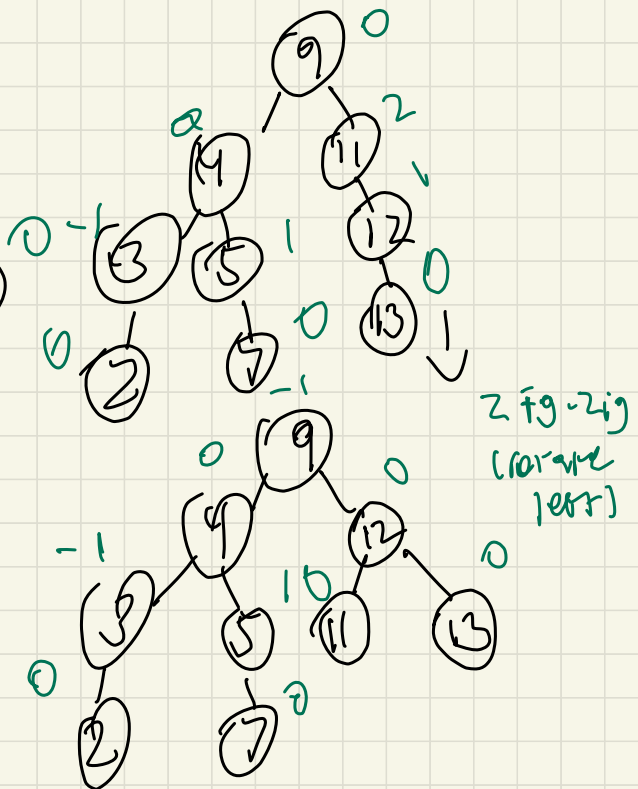 9 0
0 4 11 2
0 -1 3 5 1 12 1
0 2 7 0 13 0
zig-zig
(rotate
left)
9 -1
0 4 12 0
-1 3 5 1 0 11 13 0
0 2 7 0